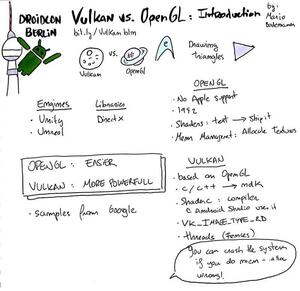 DROIDCON
BERLIN
Vulkan vs. OpenGL: Introduction
by:
Mario
Bodemann
bit.ly/Vulkanblm
Vulkan
vs.
OpenGL
Drawing
triangles
Engines
- Unity
- Unreal
Libraries
DirectX
OPENGL: EASIER
VULKAN: MORE POWERFULL
- Samples from Google
OPENGL
- No Apple support
- 1992
- Shaders: text → Ship it
- Mem Managment: Allocate Textures
VULKAN
- based on OpenGL
- C/C++ → ndk
- Shaderc: compiler
Android Studio uses it
- VK_IMAGE_TYPE_2D
- threads (Fences)
You can crash the system
if you do mem - alloc
wrong!